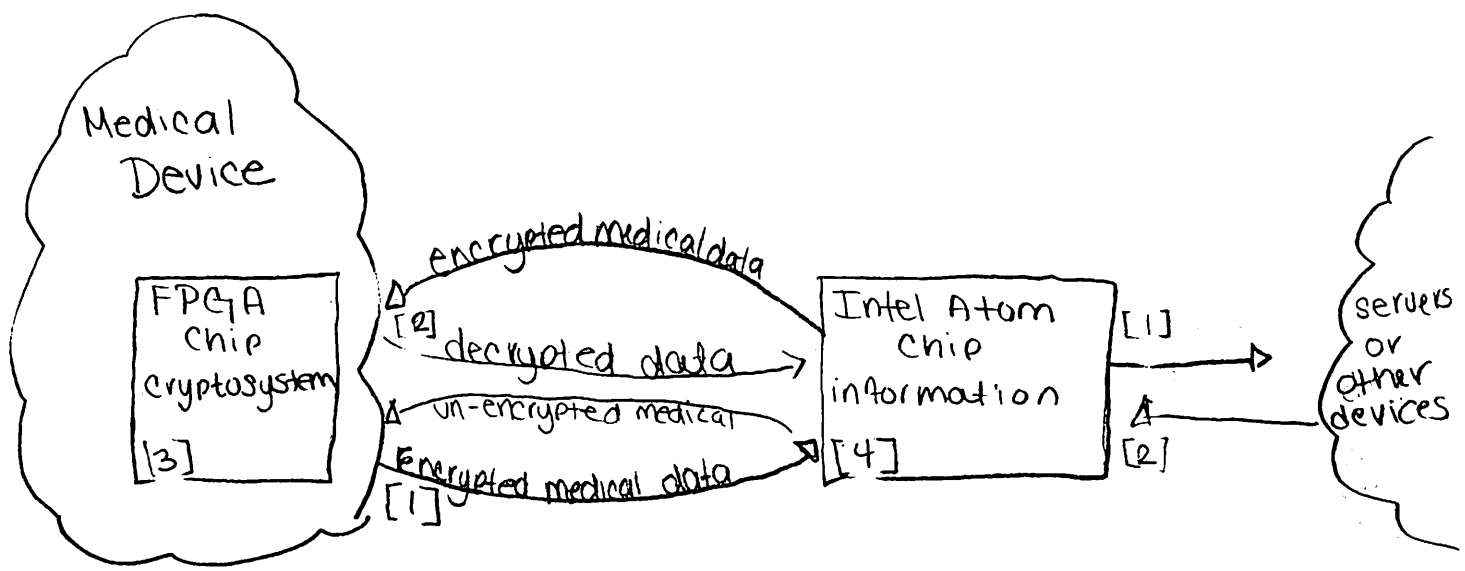 Medical
Device
FPGA
Chip
cryptosystem
[3]
encrypted medical data
[2]
decrypted data
un-encrypted medical
Encrypted medical data
[1]
Intel Atom
Chip
information
[4]
[1]
[2]
servers
or
other
devices